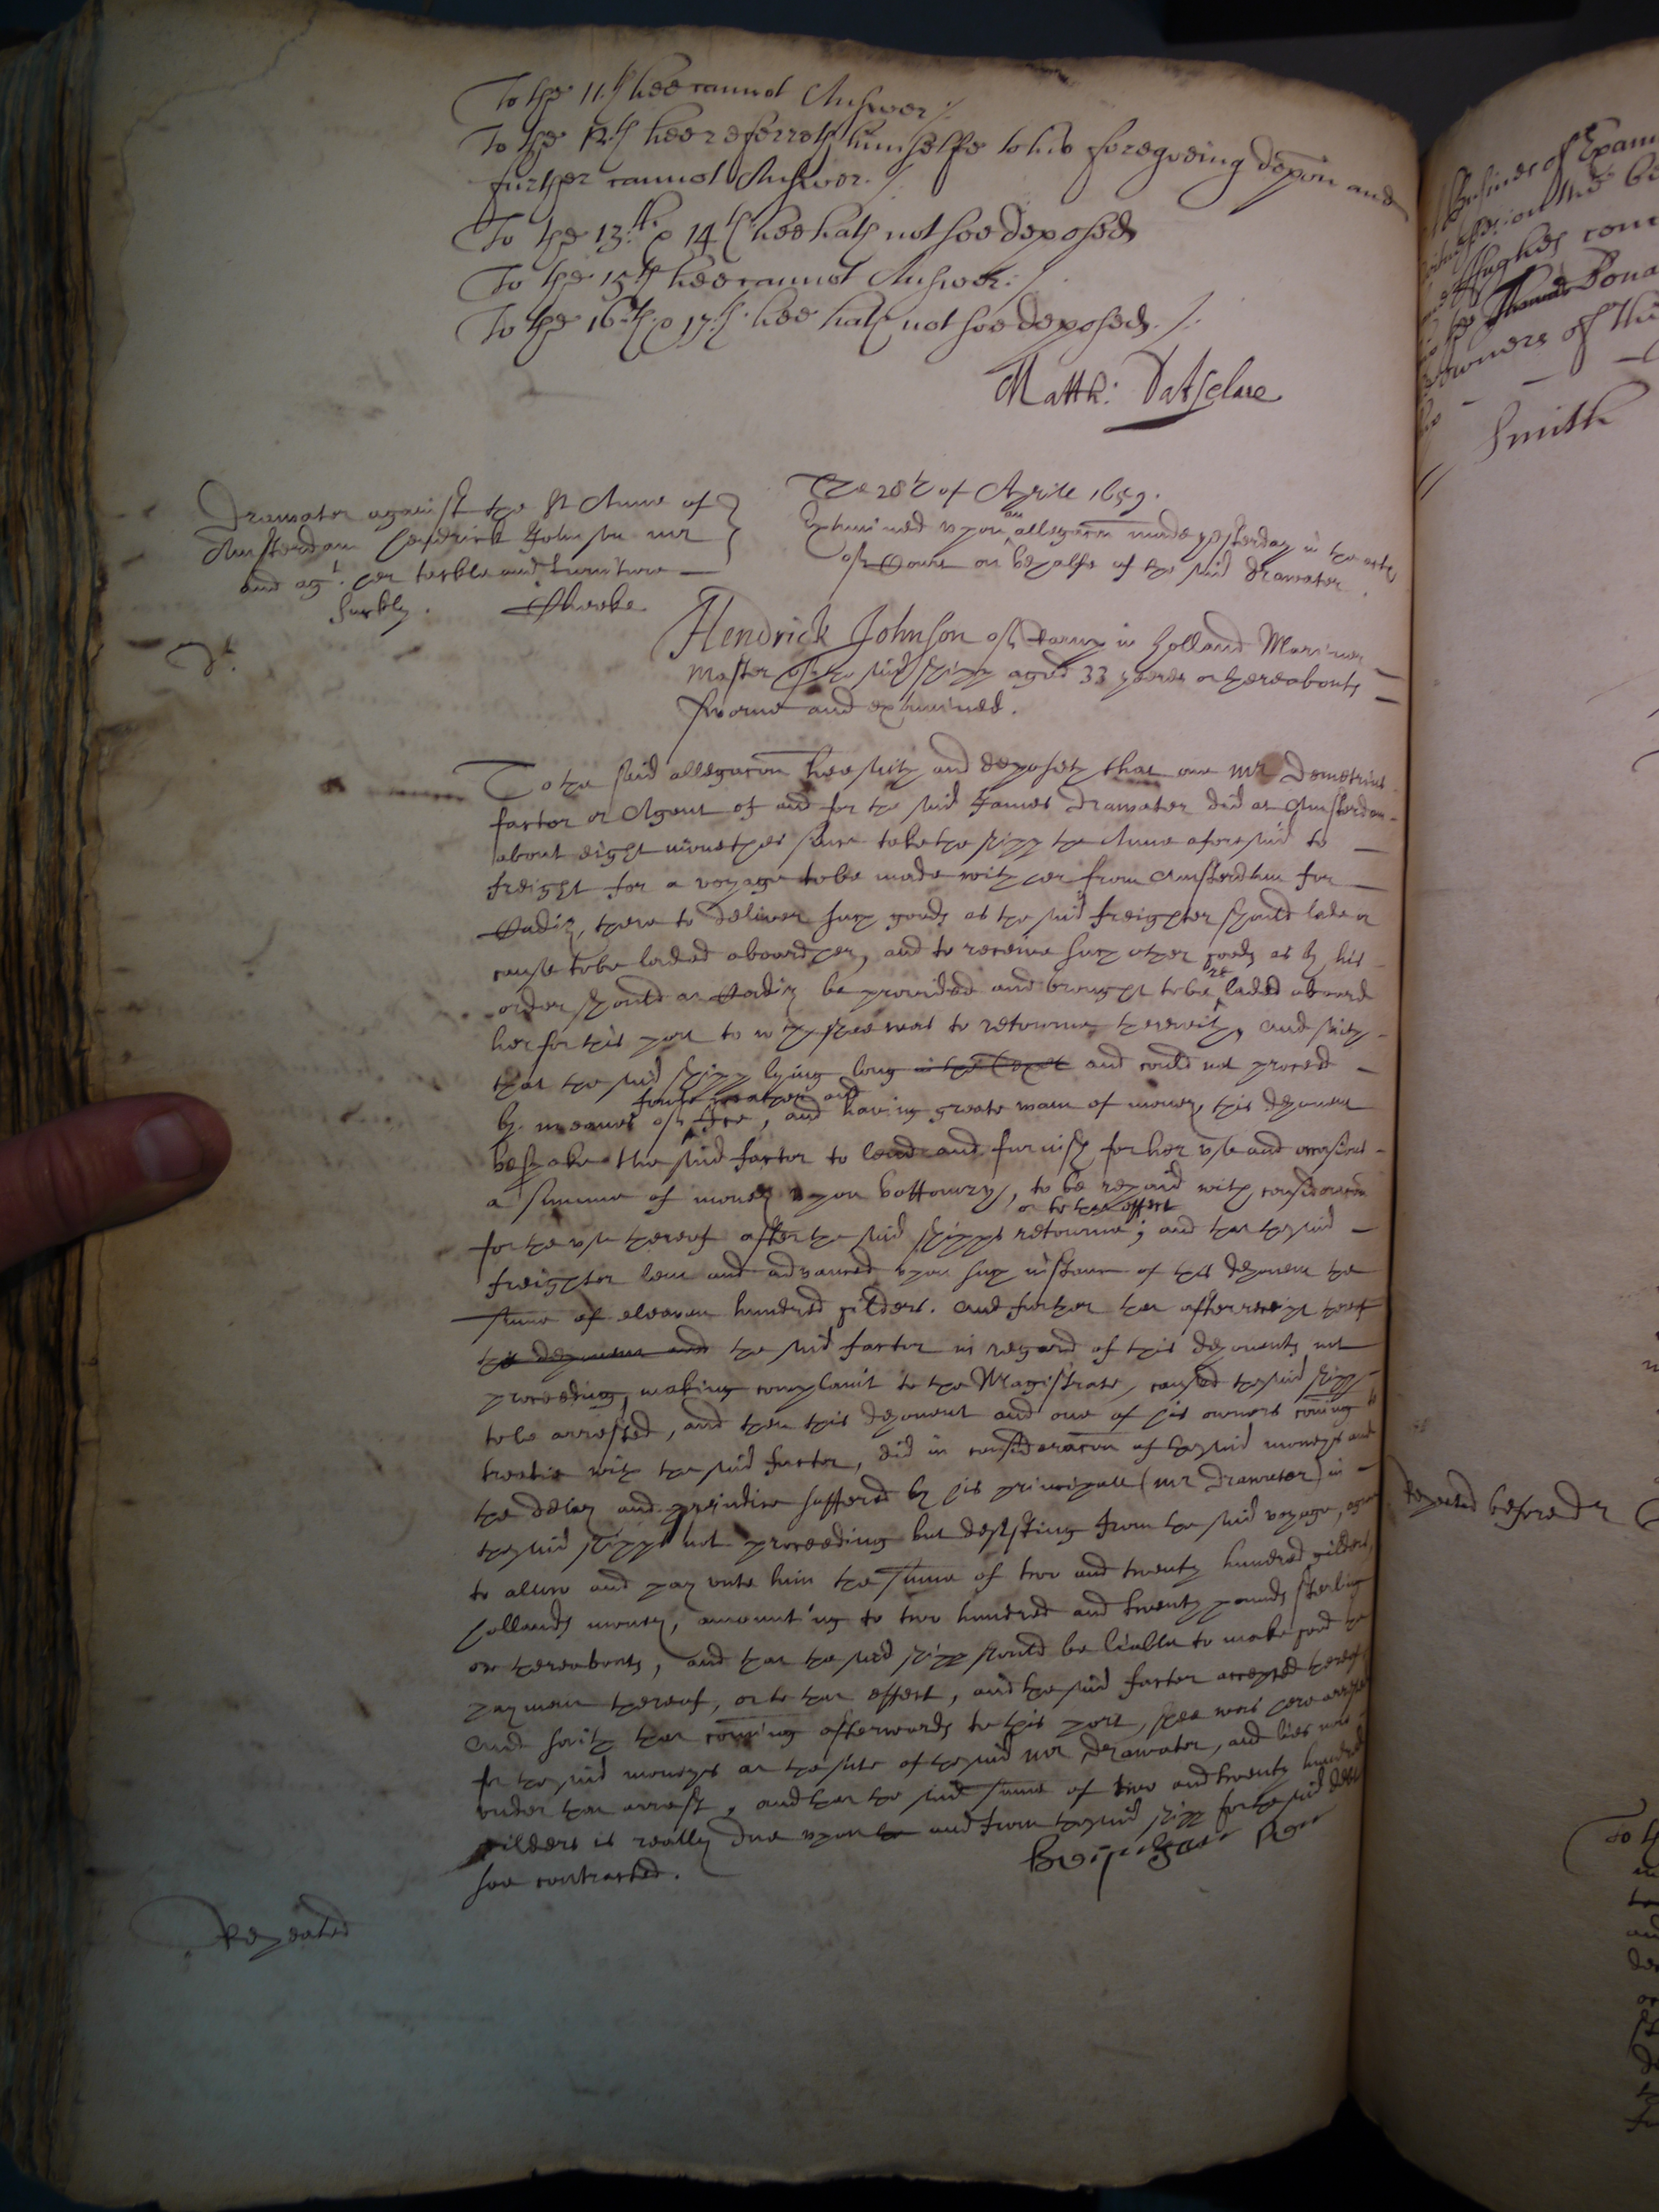 To the 11.th hee cannot Answer ./
To the 12.th hee referreth himselfe to his foregoeing depon and
further cannot Answer. /
To the 13.th & 14th hee hath not soe deposed
To the 15th hee cannot Answer: /
To the 16.th & 17.th hee hath not soe deposed. /.
Matth:
Drawater against the St Anne of
Amsterdam hendrick Johnson mr
and agt. her tackle and furniture
Suckly. Cheeke
The 28th of Aprill 1659.
Examined upon an allegacon made yesterday in the acts
of Court on behalfe of the said Drawater.
Hendrick Johnson of in Holland Mariner
Master of the said shipp aged 33 yeeres or thereabouts
sworne and examined.
To the said allegacon hee saith and deposeth that one mr Demetrius
factor or Agent of and for the said James Drawater did at Amsterdam
about eight monethes since take the shipp the Anne aforesaid to
freight for a voyage to be made with her from Amsterdam for
Cadiz, there to deliver such goods as the said freighter should lade or
cause to be laded aboard her, and to receive such other goods as by his
order should at Cadiz be provided and brought to be laded aboard
her for this port to which shee was to returne therewith, and saith
that the said shipp lying long in the Texel and could not proceed
by meanes of foule weather and Ice, and having greate want of money, this deponent
bespake the said factor to lend and furnish for her use and occasions
a summe of money upon bottomry, to be repaid with consideracon
for the use thereof after the said shipps returne, or to that effect; and that the said
freighter lent and advanced upon such instance of this deponent the
summe of eleaven hundred gilders. And further that after receipt thereof
this deponent and the said factor in regard of this deponents not
proceeding, making complaint to the Magistrate, caused the said shipp
to be arrested, and then this deponent and one of his owners coming to
treatie with the said factor, did in consideracon of the said moneys and
the delay and prejudice suffered by his principall (mr Drawater) in
the said shipps not proceeding but desisting from the said voyage, agree
to allow and pay unto him the summe of two and twenty hundred gilders
hollands money, amounting to two hundred and twenty pounds sterling
or thereabouts, and that the said shipp should be liable to make good the
payment thereof, or to that effect, and the said factor accepted thereof
And saith that coming afterwards to this port, shee was here arrested
for the said moneys at the suite of the said mr Drawater, and lies now
under that arrest, and that the said summe of two and twenty hundred
gilders is really due upon and from the said shipp for the said debt
soe contracted.
Repeated
Repeated before dr
Smith